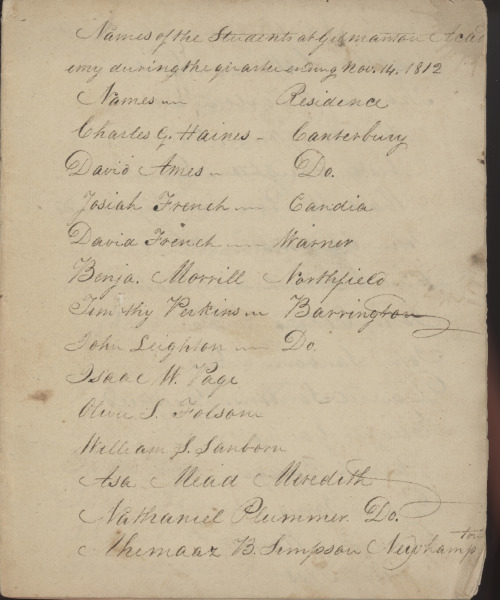 Names of the Students at Gilmanton Acad
emy during the quarter ending Nov. 14. 1812
Names Residence
Charles G. Haines Canterbury
David Ames Do.
Josiah French Candia
David French Warner
Benja. Morrill Northfield
Timothy Perkins Barrington
John Leighton Do.
Isaac W. Page
Olive S. Folsom
William S. Sanborn
Asa Mead Meredith
Nathaniel Plummer Do.
Ahimaaz B. Simpson Newhampton